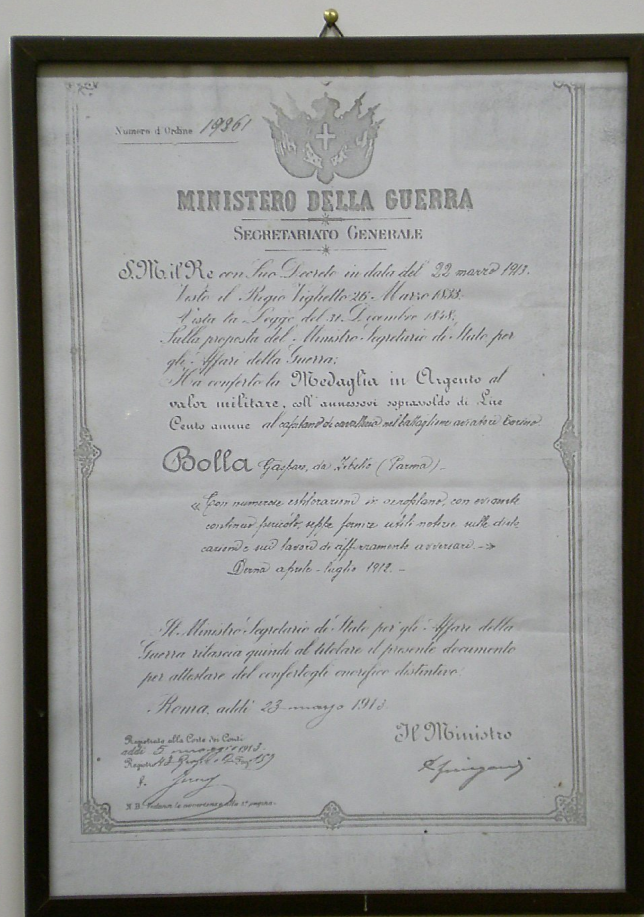 Numero d'Ordine 19361
MINISTERO DELLA GUERRA
SEGRETARIATO GENERALE
S.M. il Re con Suo Decreto in data del 22 marzo 1913.
Visto il Regio Viglietto 26 Marzo 1833;
Vista la Legge del 31 Dicembre 1848;
Sulla proposta del Ministro Segretario di Stato per
gli Affari della Guerra;
Ha conferto la Medaglia in Argento al
valor militare, coll'annessovi soprassoldo di Lire
Cento annue al capitano di cavalleria nel battaglione aviatori Torino
Bolla Gaspare, da Zibello (Parma)
« Con numerose esplorazioni in aeroplano, con evidente
continuo pericolo, seppe fornire utili notizie sulle dislo
cazioni e sui lavori di afforzamento avversari. »
Derna aprile - luglio 1912. -
Il Ministro Segretario di Stato per gli Affari della
Guerra rilascia quindi al titolare il presente documento
per attestare del confertogli onorifico distintivo.
Roma, addì 23 marzo 1913
Il Ministro
Registrato alla Corte dei Conti
addì 5 maggio 1913
Registro 159
N.B.